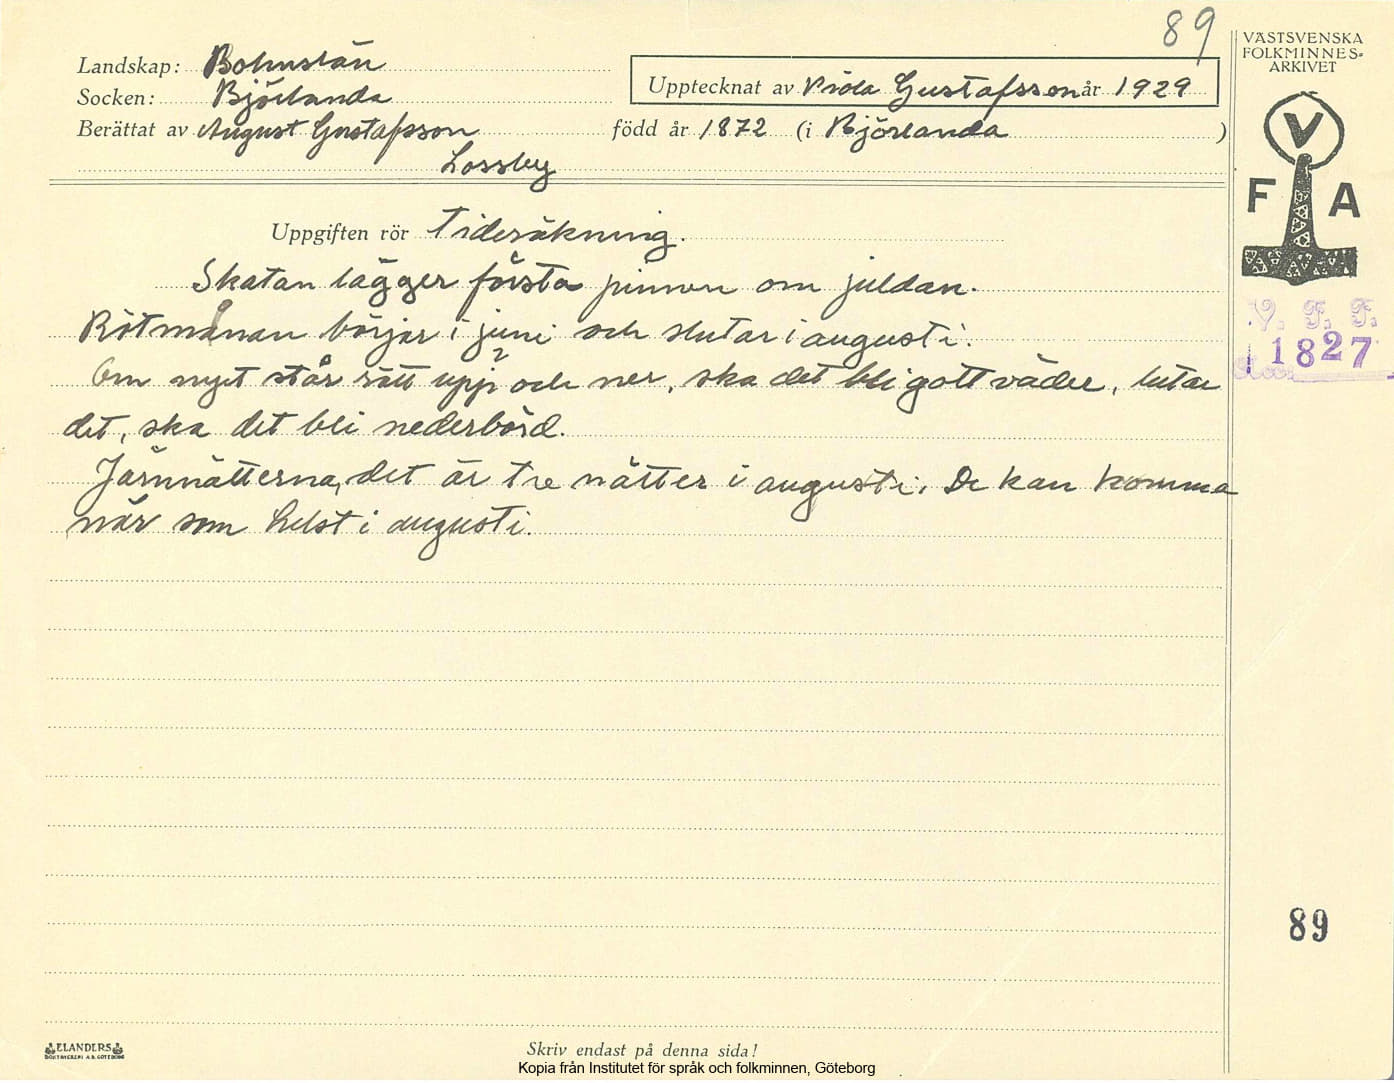 89
Landskap: Bohuslän
Socken: Björlanda
Upptecknat av Viola Gustafsson år 1929
Berättat av August Gustafsson född år 1872 (i Björlanda)
Lossby
VÄSTSVENSKA
FOLKMINNES-
ARKIVET
V
F A
V. F. F.
1827
Uppgiften rör Tideräkning.
Skatan lägger första pinnen om juldan.
Rötmånan börjar i juni och slutar i augusti.
Om nyet står rätt upp och ner, ska det bli gott väder, lutar
det, ska det bli nederbörd.
Järnnätterna, det är tre nätter i augusti. De kan komma
när som helst i augusti.
89
ELANDERS
BOKTRYCKERI A.B. GÖTEBORG
Skriv endast på denna sida!
Kopia från Institutet för språk och folkminnen, Göteborg